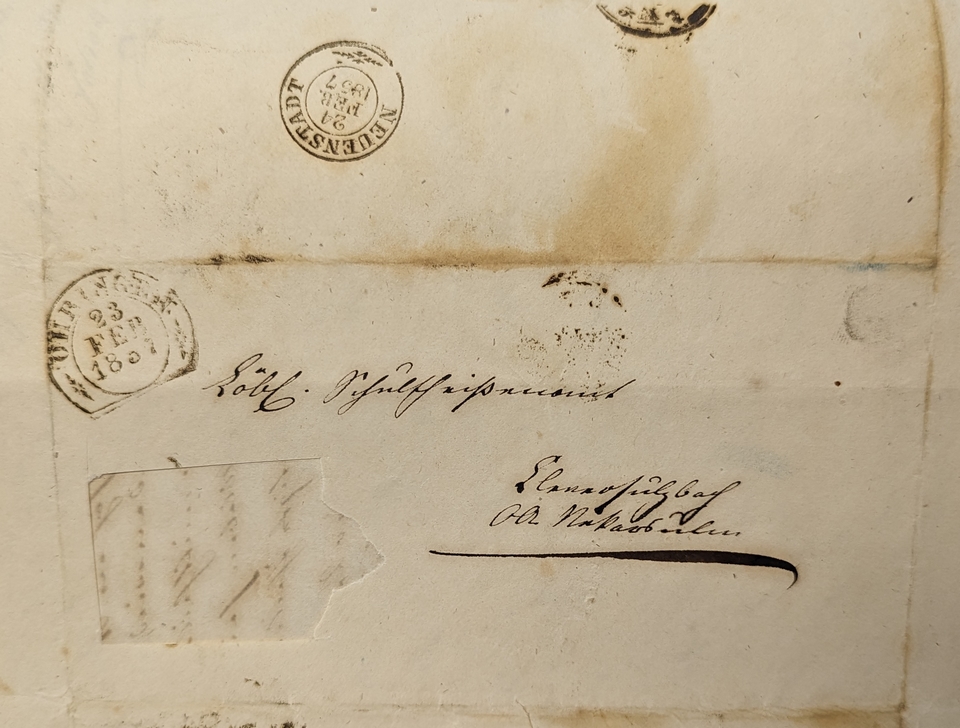 NEUENSTADT
24
FEB
1857
ÖHRINGEN
23
FEB
185
Löbl. Schultheißenamt
Cleversulzbach
OA Nekarsulm